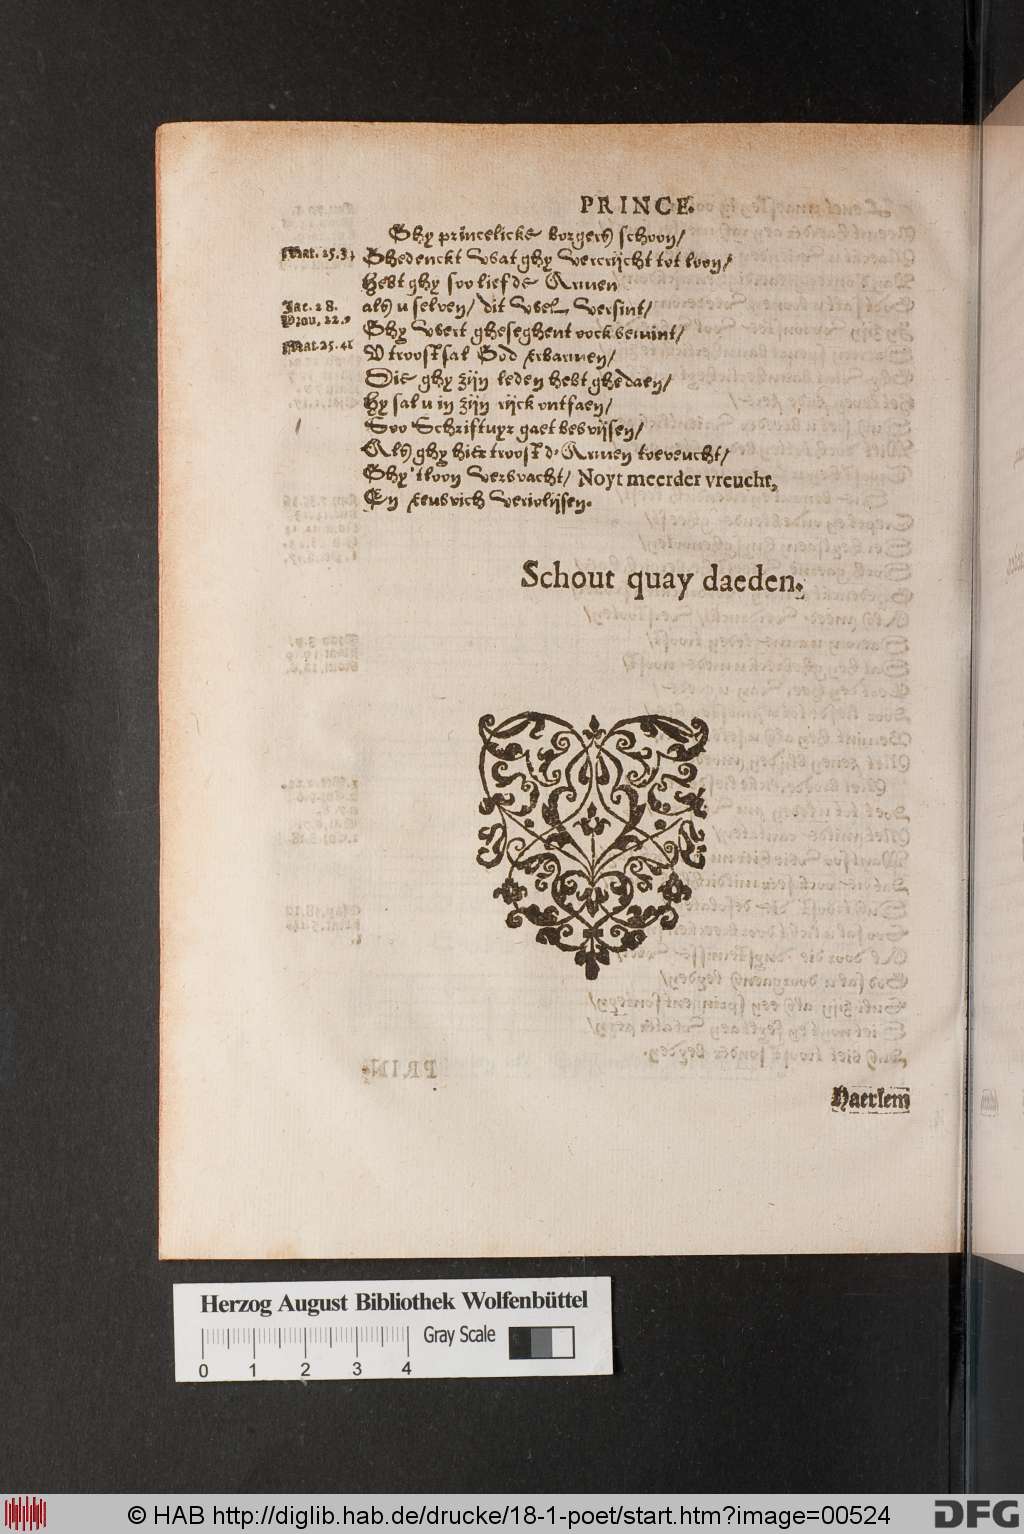 PRINCE.
Ghy princelicke borgers schoon/
Mat. 25.3;
Ghedenckt wat ghy vercrijcht tot loon/
Hebt ghy soo lief de Armen
Jac. 2 8.
als u selven/ dit wel versint/
Prou, 22.9
Ghy wert gheseghent oock bemint/
Mat. 25. 41
V troost sal God erbarmen/
Die ghy zijn leden hebt ghedaen/
Hy sal u in zijn rijck ontfaen/
Soo Schriftuyr gaet bewijsen/
Als ghy hier troost d'Armen toeveucht/
Ghy 'tloon verwacht/ Noyt meerder vreucht,
En eeuwich verjolijsen.
Schout quay daeden.
Haerlem
PRIN-
Herzog August Bibliothek Wolfenbüttel
Gray Scale
0 1 2 3 4
© HAB http://diglib.hab.de/drucke/18-1-poet/start.htm?image=00524
DFG